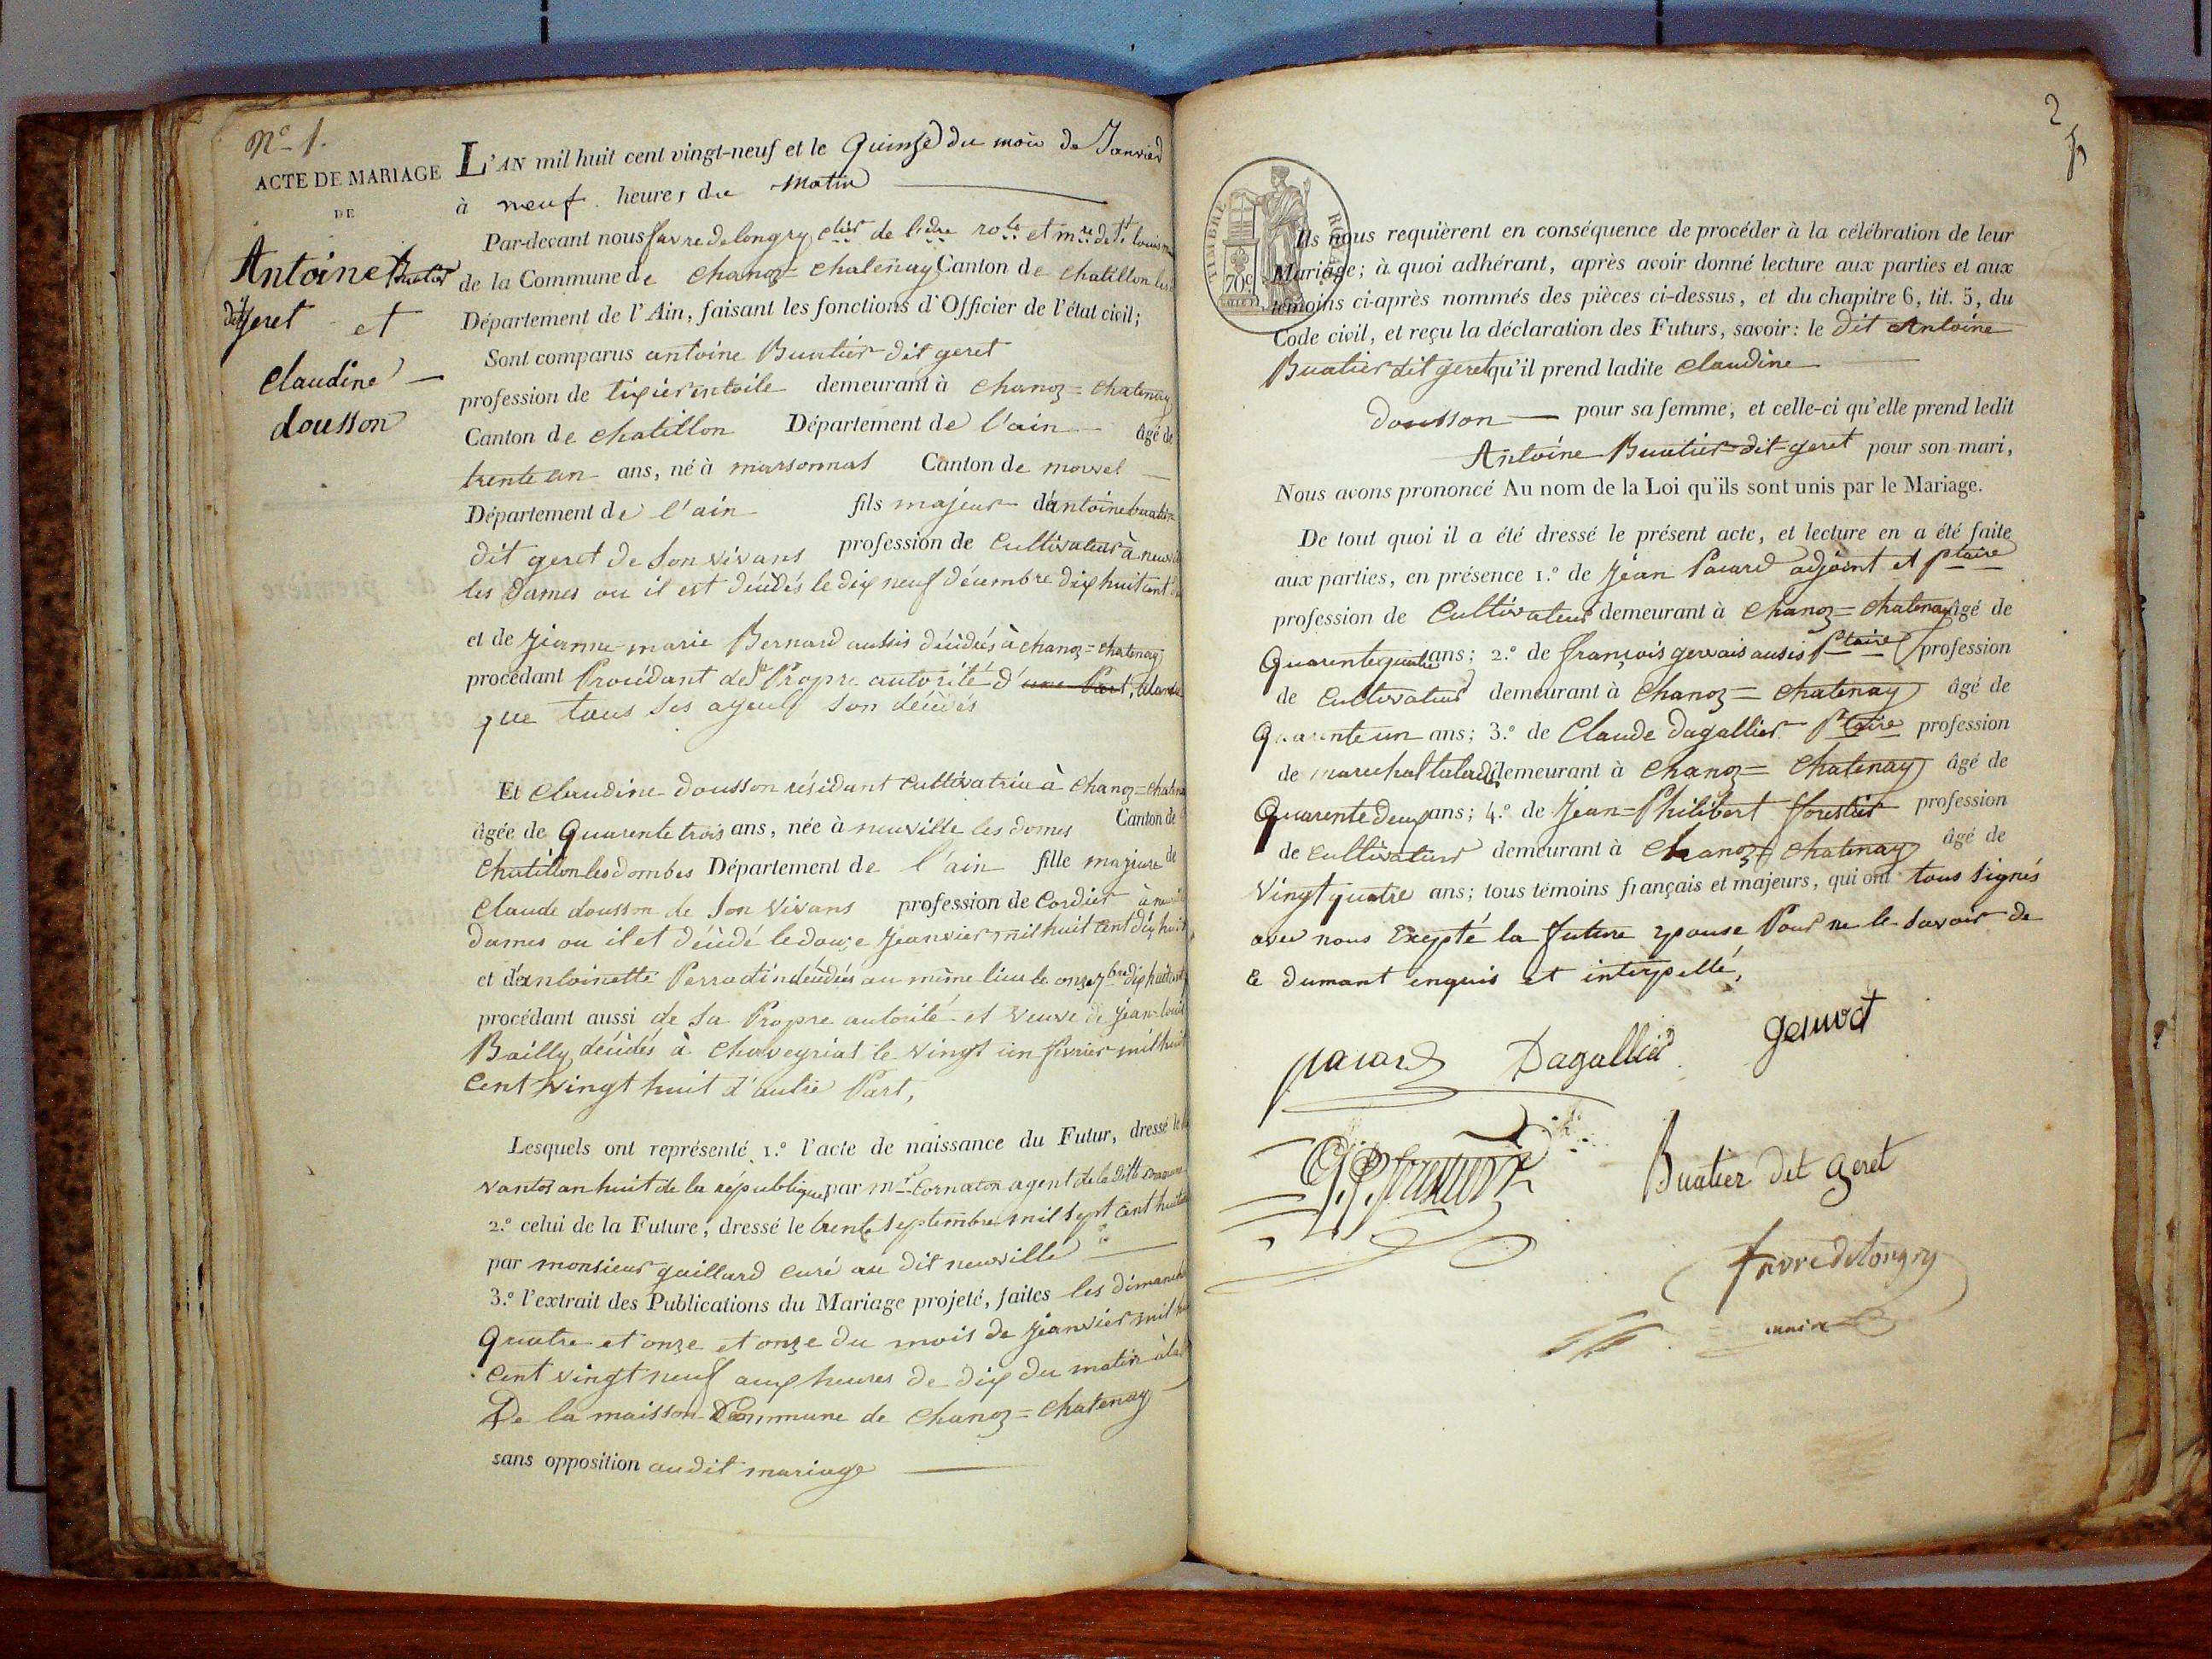 N° 1.
ACTE DE MARIAGE
DE
Antoine Buatier
dit geret et
Claudine
dousson
L'AN mil huit cent vingt-neuf et le Quinse du mois de Janvier
à neuf heures du Matin
Par-devant nous favre delongry clier de l'edre role et mre de St louis
de la Commune de Chanoz=Chatenay Canton de Chatillon les
Département de l'Ain, faisant les fonctions d'Officier de l'état civil;
Sont comparus antoine Buatier dit geret
profession de tixier en toile demeurant à Chanoz=Chatenay
Canton de Chatillon Département de l'ain âgé de
trente un ans, né à marsonnas Canton de
Département de l'ain fils majeur d'antoine buatier
dit geret de son vivans profession de Cultivateur à
les Dames ou il est décidés le dix neuf décembre dix huit cent
et de Jeanne-marie Bernard aussis décidées à chanoz=chatenay
procédant Procédant de sa Propre autorité d'une Part,
que tous ses ayeuls son décidés
Et Claudine dousson résidant cultivatrice à Chanoz=
âgée de Quarente trois ans, née à neuville les domes Canton de
Chatillon les dombes Département de l'ain fille majeure de
Claude dousson de son vivans profession de Cordier
dames ou il et décidé le douze Jeanvier mil huit cent dix huit
et d'antoinette Perradin décidées au même lieu le onze 7bre dix huit cent
procédant aussi de sa Propre autorité et veuve de jean-louis
Bailly décidés à Chaveyriat le vingt un fevrier mil huit
Cent vingt huit d'autre Part,
Lesquels ont représenté 1.° l'acte de naissance du Futur, dressé le
vantos an huit de la république par mr Cornaton agent de la ditte
2.° celui de la Future, dressé le trente septembre mil sept cent
par monsieur guillard Curé au dit neuville
3.° l'extrait des Publications du Mariage projeté, faites les dimanche
quatre et onze et onze du mois de Jeanvier mil
Cent vingt neuf aux heures de dix du matin
De la maisson Commune de Chanoz=Chatenay
sans opposition audit mariage
2
TIMBRE ROYAL
70c
Ils nous requièrent en conséquence de procéder à la célébration de leur
Mariage; à quoi adhérant, après avoir donné lecture aux parties et aux
témoins ci-après nommés des pièces ci-dessus, et du chapitre 6, tit. 5, du
Code civil, et reçu la déclaration des Futurs, savoir: le dit Antoine
Buatier dit geret qu'il prend ladite Claudine
Dousson pour sa femme, et celle-ci qu'elle prend ledit
Antoine Buatier-dit-geret pour son mari,
Nous avons prononcé Au nom de la Loi qu'ils sont unis par le Mariage.
De tout quoi il a été dressé le présent acte, et lecture en a été faite
aux parties, en présence 1.° de Jean Pacard adjoint et Ptaire
profession de Cultivateur demeurant à Chanoz=Chatenay âgé de
Quarente quatre ans; 2.° de françois gervais ausis Ptaire profession
de Cultivateur demeurant à Chanoz=Chatenay âgé de
Quarente un ans; 3.° de Claude Dagallier Ptaire profession
de marechal demeurant à Chanoz=Chatenay âgé de
Quarente Deux ans; 4.° de Jean=Philibert forestier profession
de Cultivateur demeurant à Chanoz=Chatenay âgé de
Vingt quatre ans; tous témoins français et majeurs, qui ont tous signés
avec nous Excepté la future epouse Pour ne le savoir de
ce dumant enquis et interpellé,
pacard Dagallier
Buatier dit geret
favre delongry
maire